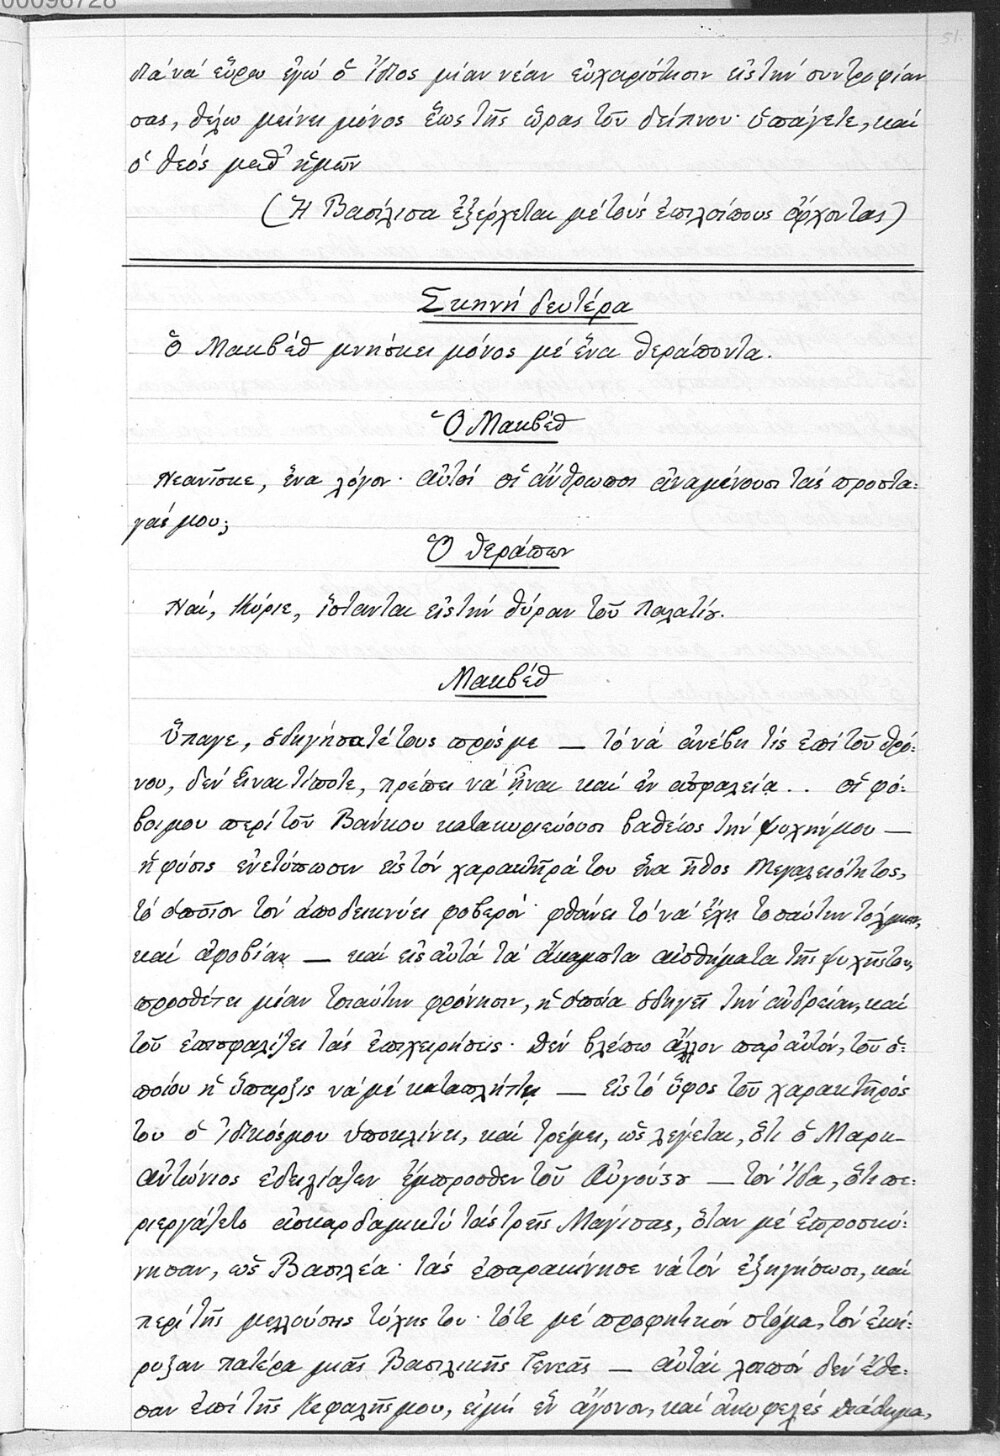 00098728
51
διά νά εὕρω ἐγώ ὁ ἴδιος μίαν νέαν εὐχαρίστησιν εἰς τήν συντροφίαν
σας, θέλω μείνει μόνος ἕως τῆς ὥρας τοῦ δείπνου· ὑπάγετε, καί
ὁ θεός μεθ' ἡμῶν
(Ἡ Βασίλισα ἐξέρχεται μέ τούς ἐπιλοίπους ἄρχοντας)
Σκηνή δευτέρα
Ὁ Μακβέθ μνήσκει μόνος μέ ἕνα θεράποντα.
Ὁ Μακβέθ
Νεανίσκε, ἕνα λόγον· αὐτοί οἱ ἄνθρωποι ἀναμένουσι τάς προστα-
γάς μου;
Ὁ θεράπων
Ναί, Κύριε, ἵστανται εἰς τήν θύραν τοῦ Παλατίου.
Μακβέθ
Ὕπαγε, ὁδηγήσατέ τους πρός με — τό νά ἀνέβη τίς ἐπί τοῦ θρό-
νου, δέν εἶναι τίποτε, πρέπει νά ἦναι καί ἐν ἀσφαλείᾳ .. οἱ φό-
βοι μου περί τοῦ Βάνκου κατακυριεύουσι βαθέως τήν ψυχήν μου —
ἡ φύσις ἐνετύπωσεν εἰς τόν χαρακτῆρά του ἕνα ἦθος Μεγαλειότητος,
τό ὁποῖον τόν ἀποδεικνύει φοβερόν· φθάνει τό νά ἔχῃ τοσαύτην τόλμην,
καί ἀφοβίαν — καί εἰς αὐτά τά ἄκαμπτα αἰσθήματα τῆς ψυχῆς του,
προσθέτει μίαν τοιαύτην φρόνησιν, ἡ ὁποία ὁδηγεῖ τήν ἀνδρείαν, καί
τοῦ ἐπισφαλίζει τάς ἐπιχειρήσεις· Δέν βλέπω ἄλλον παρ' αὐτόν, τοῦ ὁ-
ποίου ἡ ὕπαρξις νά μέ καταπλήττῃ — εἰς τό ὕφος τοῦ χαρακτῆρός
του ὁ ἰδικός μου ὑποκλίνει, καί τρέμει, ὡς λέγεται, ὅτι ὁ Μαρκ-
Αντώνιος ἐδειλίαζεν ἔμπροσθεν τοῦ Αὐγούστου — τόν ἴδα, ὅτι πε-
ριεργάζετο ἀσκαρδαμυκτύ τάς τρεῖς Μάγισας, ὅταν μέ ἐπροσκύ-
νησαν, ὡς Βασιλέα· τάς ἐπαρακίνησε νά τόν ἐξηγήσωσι, καί
περί τῆς μελλούσης τύχης του· τότε μέ προφητικόν στόμα, τόν ἐκή-
ρυξαν πατέρα μιᾶς Βασιλικῆς Γενεᾶς — αὐταί λοιπόν δέν ἔθε-
σαν ἐπί τῆς Κεφαλῆς μου, εἰμή ἕν ἄγονον, καί ἀνωφελές Διάδημα,